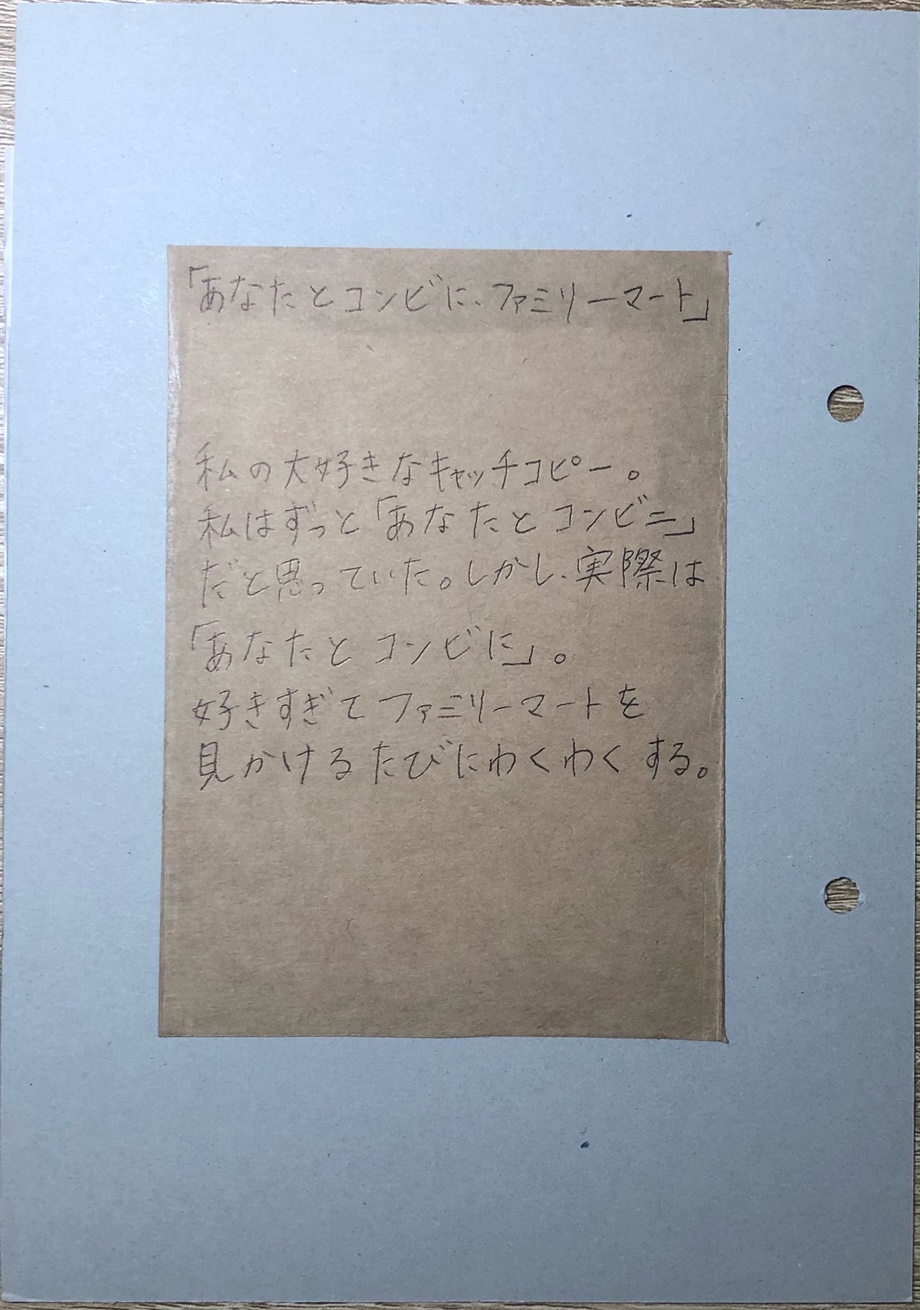 「あなたとコンビに、ファミリーマート」
私の大好きなキャッチコピー。
私はずっと「あなたとコンビニ」
だと思っていた。しかし、実際は
「あなたとコンビに」。
好きすぎてファミリーマートを
見かけるたびにわくわくする。